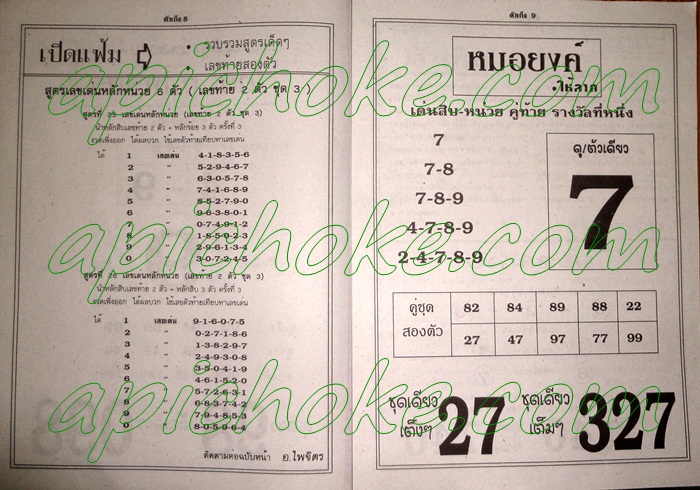 ตัวเก็ง 8
เปิดแฟ้ม
• รวบรวมสูตรเด็ดๆ
• เลขท้ายสองตัว
สูตรเลขเด่นหลักหน่วย 6 ตัว ( เลขท้าย 2 ตัว ชุด 3 )
สูตรที่ 25 เลขเด่นหลักหน่วย (เลขท้าย 2 ตัว ชุด 3)
นำหลักสิบเลขท้าย 2 ตัว + หลักร้อย 3 ตัว ครั้งที่ 3
งวดเพิ่งออก ได้ผลบวก ใช้เลขตัวท้ายเทียบหาเลขเด่น
ได้ 1 เลขเด่น 4-1-8-3-5-6
2 " 5-2-9-4-6-7
3 " 6-3-0-5-7-8
4 " 7-4-1-6-8-9
5 " 8-5-2-7-9-0
6 " 9-6-3-8-0-1
7 " 0-7-4-9-1-2
8 " 1-8-5-0-2-3
9 " 2-9-6-1-3-4
0 " 3-0-7-2-4-5
สูตรที่ 26 เลขเด่นหลักหน่วย (เลขท้าย 2 ตัว ชุด 3)
นำหลักสิบเลขท้าย 2 ตัว + หลักสิบ 3 ตัว ครั้งที่ 3
งวดเพิ่งออก ได้ผลบวก ใช้เลขตัวท้ายเทียบหาเลขเด่น
ได้ 1 เลขเด่น 9-1-6-0-7-5
2 " 0-2-7-1-8-6
3 " 1-3-8-2-9-7
4 " 2-4-9-3-0-8
5 " 3-5-0-4-1-9
6 " 4-6-1-5-2-0
7 " 5-7-2-6-3-1
8 " 6-8-3-7-4-2
9 " 7-9-4-8-5-3
0 " 8-0-5-9-6-4
ติดตามต่อฉบับหน้า อ.ไพจิตร
ตัวเก็ง 9
หมอยงค์
•ให้ลาภ
เด่นสิบ-หน่วย คู่ท้าย รางวัลที่หนึ่ง
7
7-8
7-8-9
4-7-8-9
2-4-7-8-9
ดุ!ตัวเดียว
7
คู่ชุด
สองตัว
82 84 89 88 22
27 47 97 77 99
ชุดเดียว
เต็งๆ
27
ชุดเดียว
เต็มๆ
327
apichoke.com
apichoke.com
apichoke.com